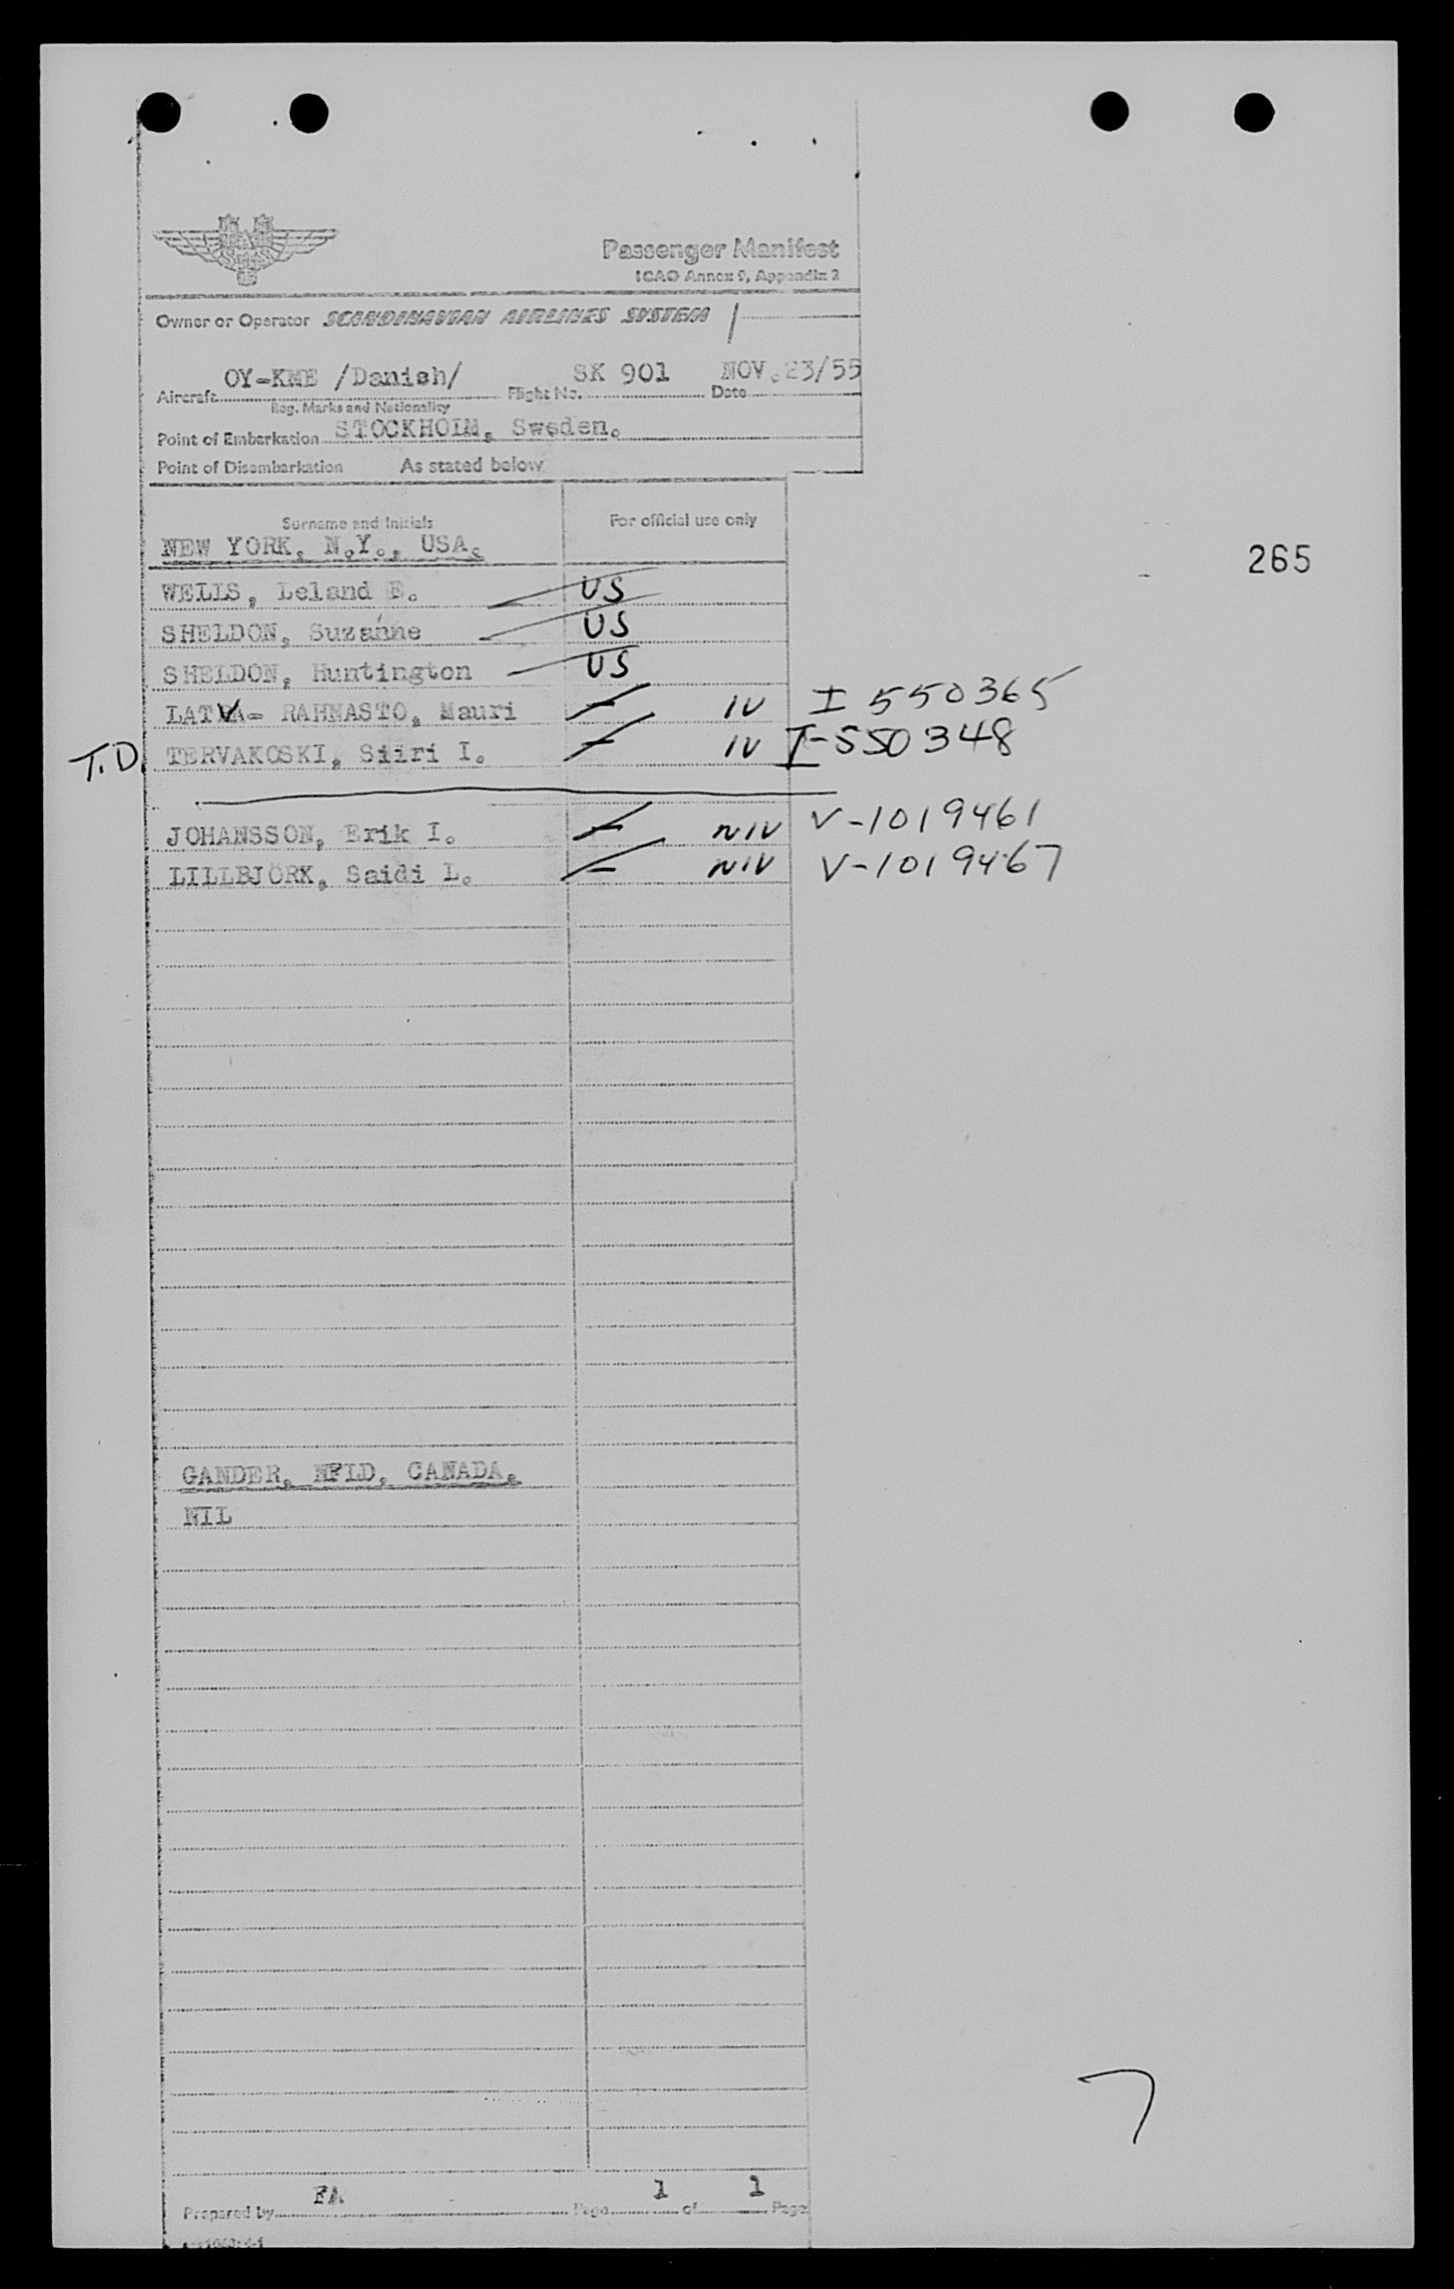 SAS
Passenger Manifest
ICAO Annex 9, Appendix 2
Owner or Operator SCANDINAVIAN AIRLINES SYSTEM
OY-KME /Danish/ SK 901 NOV.23/55
Aircraft Flight No. Date
Reg. Marks and Nationality
Point of Embarkation STOCKHOLM, Sweden.
Point of Disembarkation As stated below
Surname and Initials For official use only
NEW YORK, N.Y., USA.
265
WELLS, Leland E. US
SHELDON, Suzanne US
SHELDON, Huntington US
LATVA- RAHNASTO, Mauri IV I 550365
T.D. TERVAKOSKI, Siiri I. IV I-550348
JOHANSSON, Erik I. NIV V-1019461
LILLBJÖRK, Saidi L. NIV V-1019467
GANDER, NFLD, CANADA.
NIL
7
Prepared by FA Page 1 of 1 Page